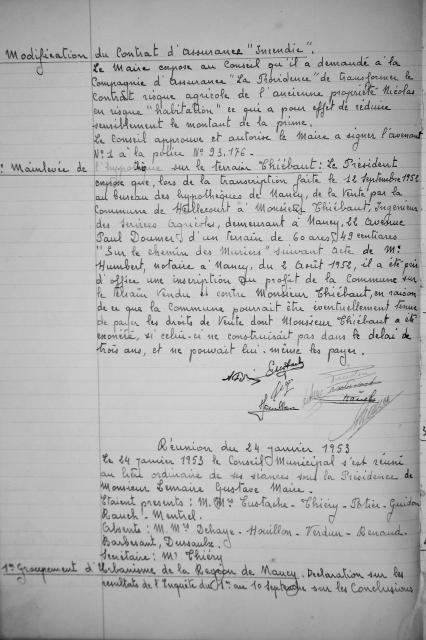 Modification du Contrat d'assurance "Incendie".
Le Maire expose au Conseil qu'il a demandé à la
Compagnie d'assurance "La Providence" de transformer le
Contrat risque agricole de l'ancienne propriété Nicolas
en risque "habitation" ce qui a pour effet de réduire
sensiblement le montant de la prime.
Le Conseil approuve et autorise le Maire à signer l'avenant
N° 1 à la police N° 93.176.
: Mainlevée de l'hypothèque sur le terrain Thiébaut : Le Président
expose que, lors de la transcription faite le 12 Septembre 1952
au bureau des hypothèques de Nancy, de la Vente par la
Commune de Heillecourt à Monsieur Thiébaut, Ingénieur
des Services Agricoles, demeurant à Nancy, 22 Avenue
Paul Doumer, d'un terrain de 60 ares, 49 centiares
"Sur le chemin des Muriers" suivant acte de Mr
Humbert, notaire à Nancy, du 2 Août 1952, il a été pris
d'office une inscription au profit de la Commune sur
le terrain Vendu et contre Monsieur Thiébaut, en raison
de ce que la Commune pourrait être éventuellement tenue
de payer les droits de Vente dont Monsieur Thiébaut a été
exonéré, si celui-ci ne construisait pas dans le délai de
trois ans, et ne pouvait lui-même les payer.
Eustache
Houillon
Réunion du 24 janvier 1953
Le 24 janvier 1953 le Conseil Municipal s'est réuni
au lieu ordinaire de ses séances sous la Présidence de
Monsieur Lemaire Gustave Maire.
Etaient présents : M.Mrs Eustache - Thiéry - Potier - Guidon
Rauch - Mentrel.
Absents : M.Mrs Dehaye - Houillon - Verdun - Renaud -
Barbesant, Dussaulx.
Secrétaire : Mr Thiéry
1° Groupement d'Urbanisme de la Région de Nancy. Déclaration sur les
résultats de l'Enquête du 1er au 10 Septembre sur les Conclusions